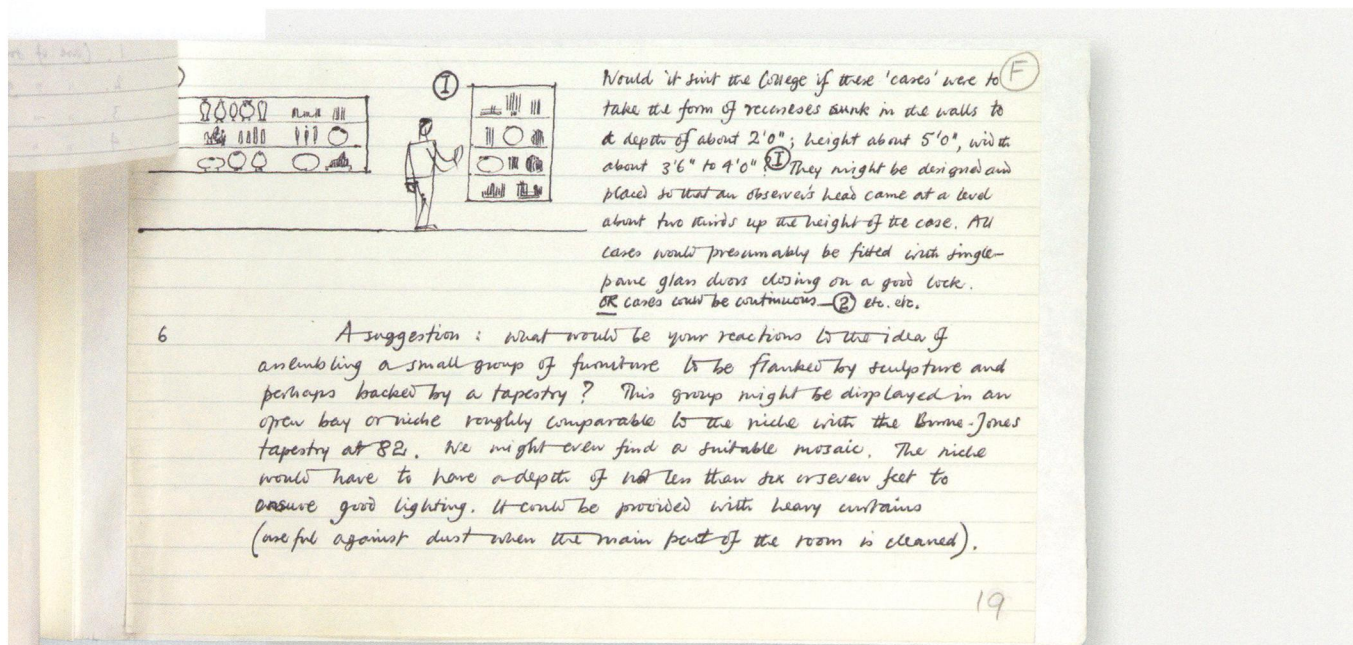 I
F
Would it suit the College if these 'cases' were to
take the form of recesses sunk in the walls to
a depth of about 2'0"; height about 5'0", width
about 3'6" to 4'0" ? I They might be designed and
placed so that an observer's head came at a level
about two thirds up the height of the case. All
cases would presumably be fitted with single-
pane glass doors closing on a good lock.
OR cases could be continuous — 2 etc. etc.
6 A suggestion : what would be your reactions to the idea of
assembling a small group of furniture to be flanked by sculpture and
perhaps backed by a tapestry ? This group might be displayed in an
open bay or niche roughly comparable to the niche with the Burne-Jones
tapestry at 82. We might even find a suitable mosaic. The niche
would have to have a depth of not less than six or seven feet to
ensure good lighting. It could be provided with heavy curtains
(useful against dust when the main part of the room is cleaned).
19